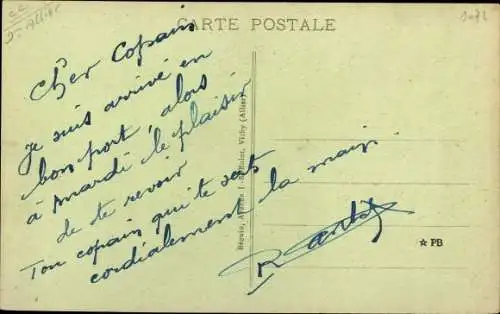 CARTE POSTALE
Cher Copain
Je suis arrivé en
bon port, alors
à mardi le plaisir
de te revoir
Ton copain qui te sert
cordialement la main.
☆ PB